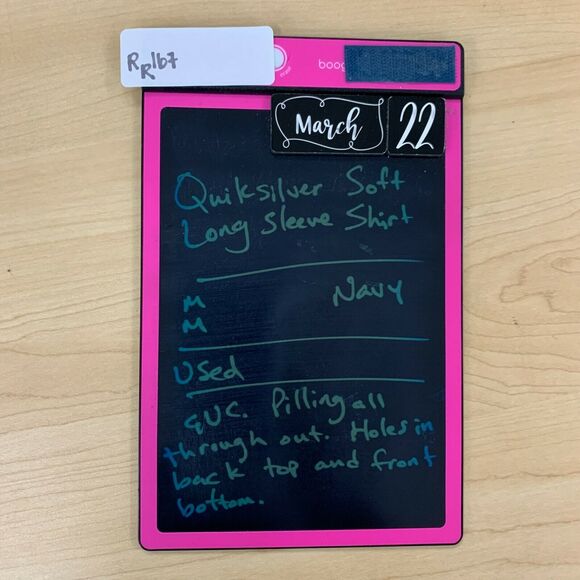 RR167
March 22
Quiksilver Soft
Long Sleeve Shirt
M Navy
M
Used
GUC. Pilling all
through out. Holes in
back top and front
bottom.